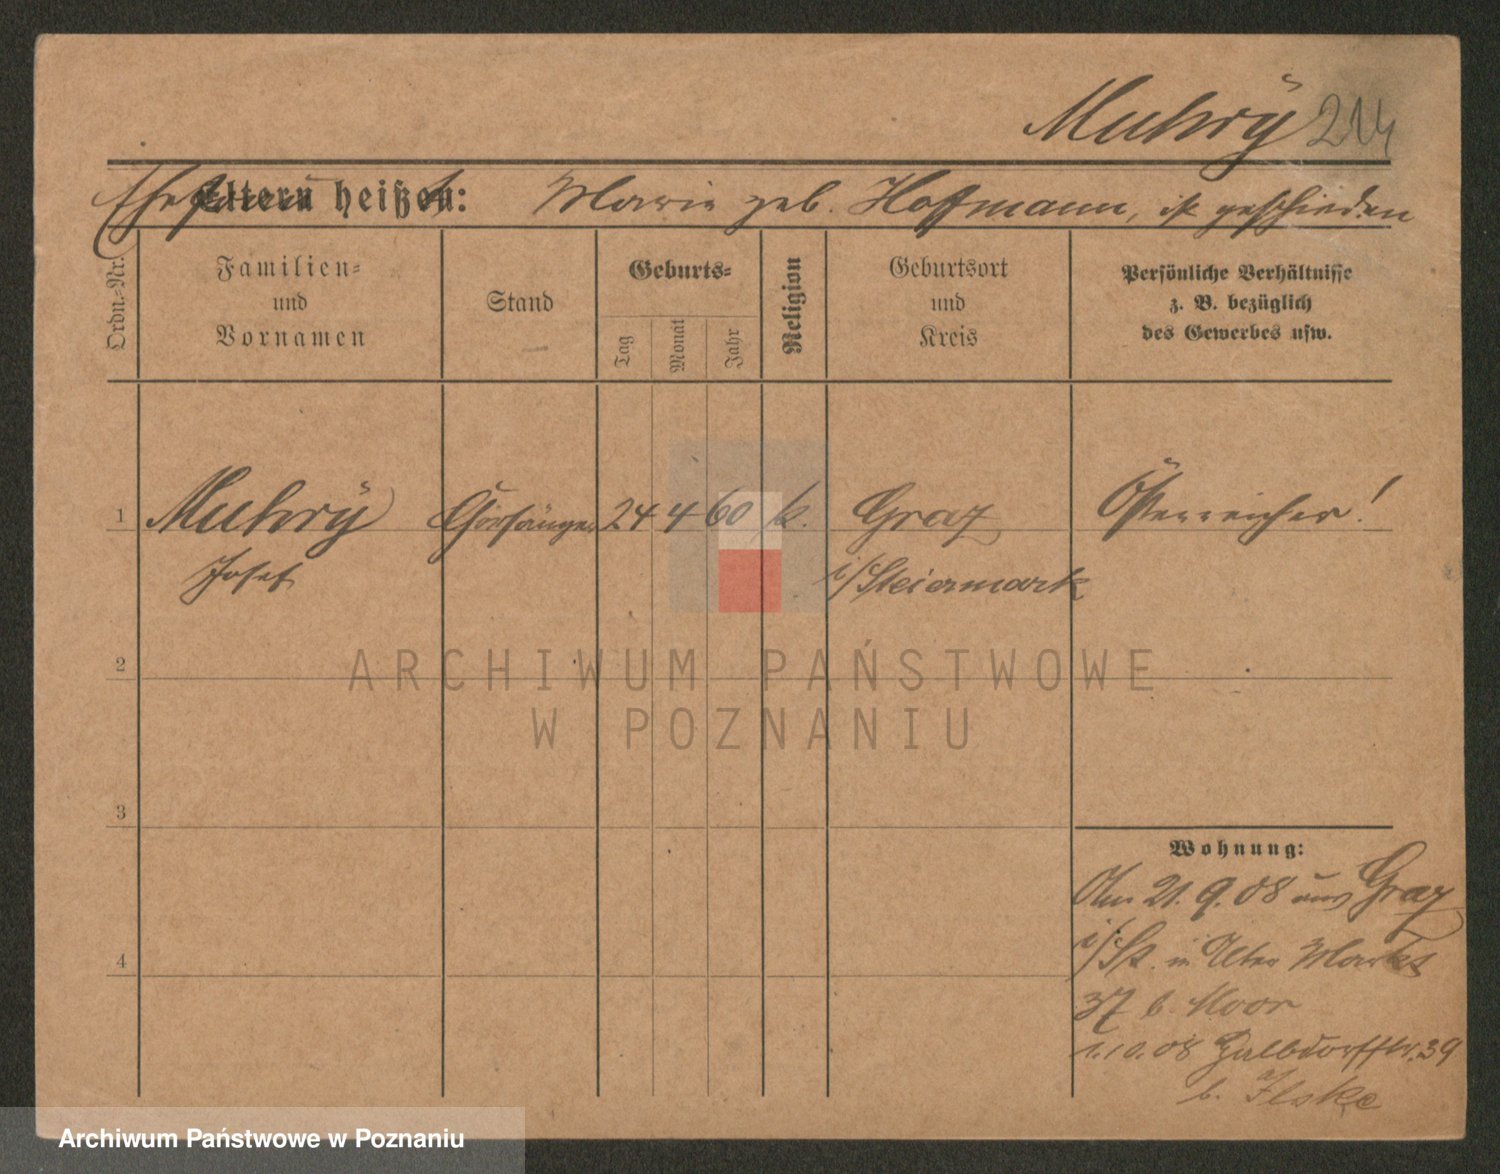 Muhrÿ 214
Eltern heißen: Marie geb. Hoffmann, ist geschieden
Ordn.-Nr.
Familien-
und
Vornamen
Stand
Geburts-
Tag
Monat
Jahr
Religion
Geburtsort
und
Kreis
Persönliche Verhältnisse
z. B. bezüglich
des Gewerbes usw.
1 Muhrÿ Chorsänger 24 4 60 k. Graz Österreicher!
Josef i/Steiermark
2
ARCHIWUM PAŃSTWOWE
W POZNANIU
3
Wohnung:
Am 21.9.08 aus Graz
i/St. in Alter Markt
4
37 b. Moor
1.10.08 Halbdorfstr. 39
b.
Archiwum Państwowe w Poznaniu